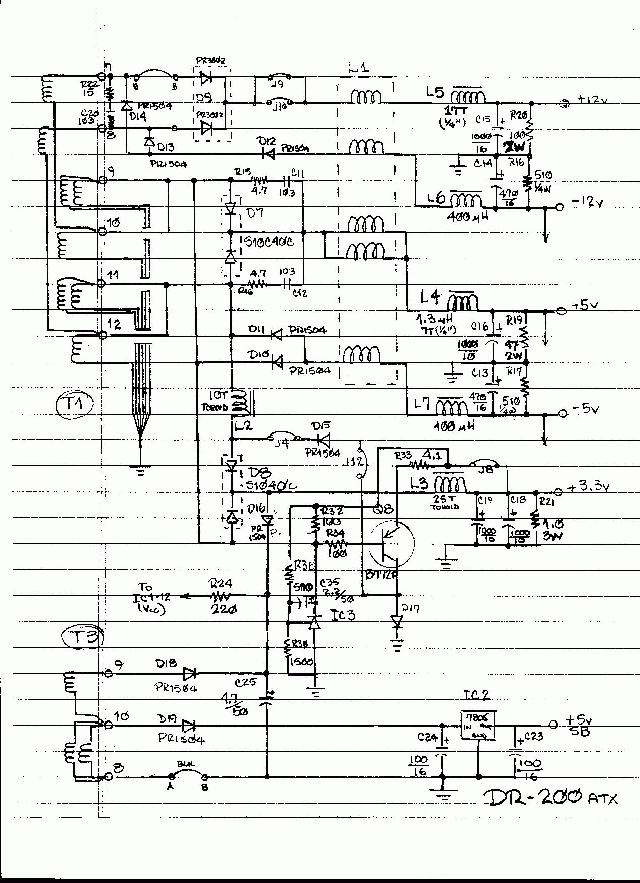 PR3002
L1
R22
10
B
B
J9
+12v
L5
C15
R20
17T
(¼")
1000
16
100
2W
C20
103
D14
PR1504
D9
PR3002
J10
D13
PR1504
D12
PR1504
C14
R16
510
¼W
470
16
9
R15
4.7
C11
103
L6
400 µH
-12v
D7
S10C40C
10
11
4.7
103
R46
C12
L4
+5v
1.3 µH
7T(¼")
C16
R19
1000
10
47
2W
12
D11
PR1504
D10
PR1504
C13
R17
470
16
510
¼W
L7
400 µH
-5v
T1
10T
TOROID
L2
J4
D15
PR1504
J12
R33
4.1
J8
D8
S1040C
L3
25T
TOROID
C19
C18
+3.3v
R21
1000
10
1000
10
1.0
3W
D16
PR
1504
R32
103
Q8
R34
100
R31
BT12P
TO
IC1-12
(Vcc)
R24
220
C35
50
IC3
D17
T3
1500
9
D18
PR1504
C25
4.7
50
10
D19
PR1504
IC2
7805
IN
+5v
SB
C24
C23
100
16
100
16
8
A
B
DR-200 ATX